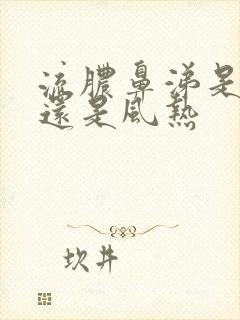 流膿鼻涕是
還是風熱
坎井